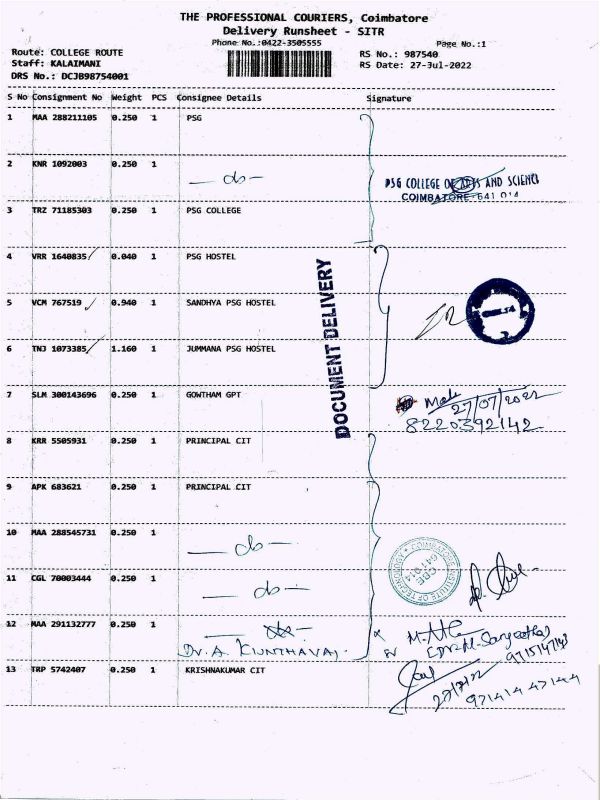 THE PROFESSIONAL COURIERS, Coimbatore
Delivery Runsheet - SITR
Phone No.:0422-3505555
Page No.:1
Route: COLLEGE ROUTE
RS No.: 987540
Staff: KALAIMANI
RS Date: 27-Jul-2022
DRS No.: DCJB98754001
S No Consignment No Weight PCS Consignee Details Signature
1 MAA 288211105 0.250 1 PSG
2 KNR 1092003 0.250 1 — do —
PSG COLLEGE OF ARTS AND SCIENCE
COIMBATORE-641 014
3 TRZ 71185303 0.250 1 PSG COLLEGE
4 VRR 1640835 0.040 1 PSG HOSTEL
DOCUMENT DELIVERY
5 VCM 767519 0.940 1 SANDHYA PSG HOSTEL
6 TNJ 1073385 1.160 1 JUMMANA PSG HOSTEL
7 SLM 300143696 0.250 1 GOWTHAM GPT
27/07/2022
8220392142
8 KRR 5505931 0.250 1 PRINCIPAL CIT
9 APK 683621 0.250 1 PRINCIPAL CIT
10 MAA 288545731 0.250 1 — do —
COIMBATORE INSTITUTE OF TECHNOLOGY
CBE
641 014
11 CGL 70003444 0.250 1 — do —
12 MAA 291132777 0.250 1 — do —
Dr. A KUNTHAVAI
13 TRP 5742407 0.250 1 KRISHNAKUMAR CIT